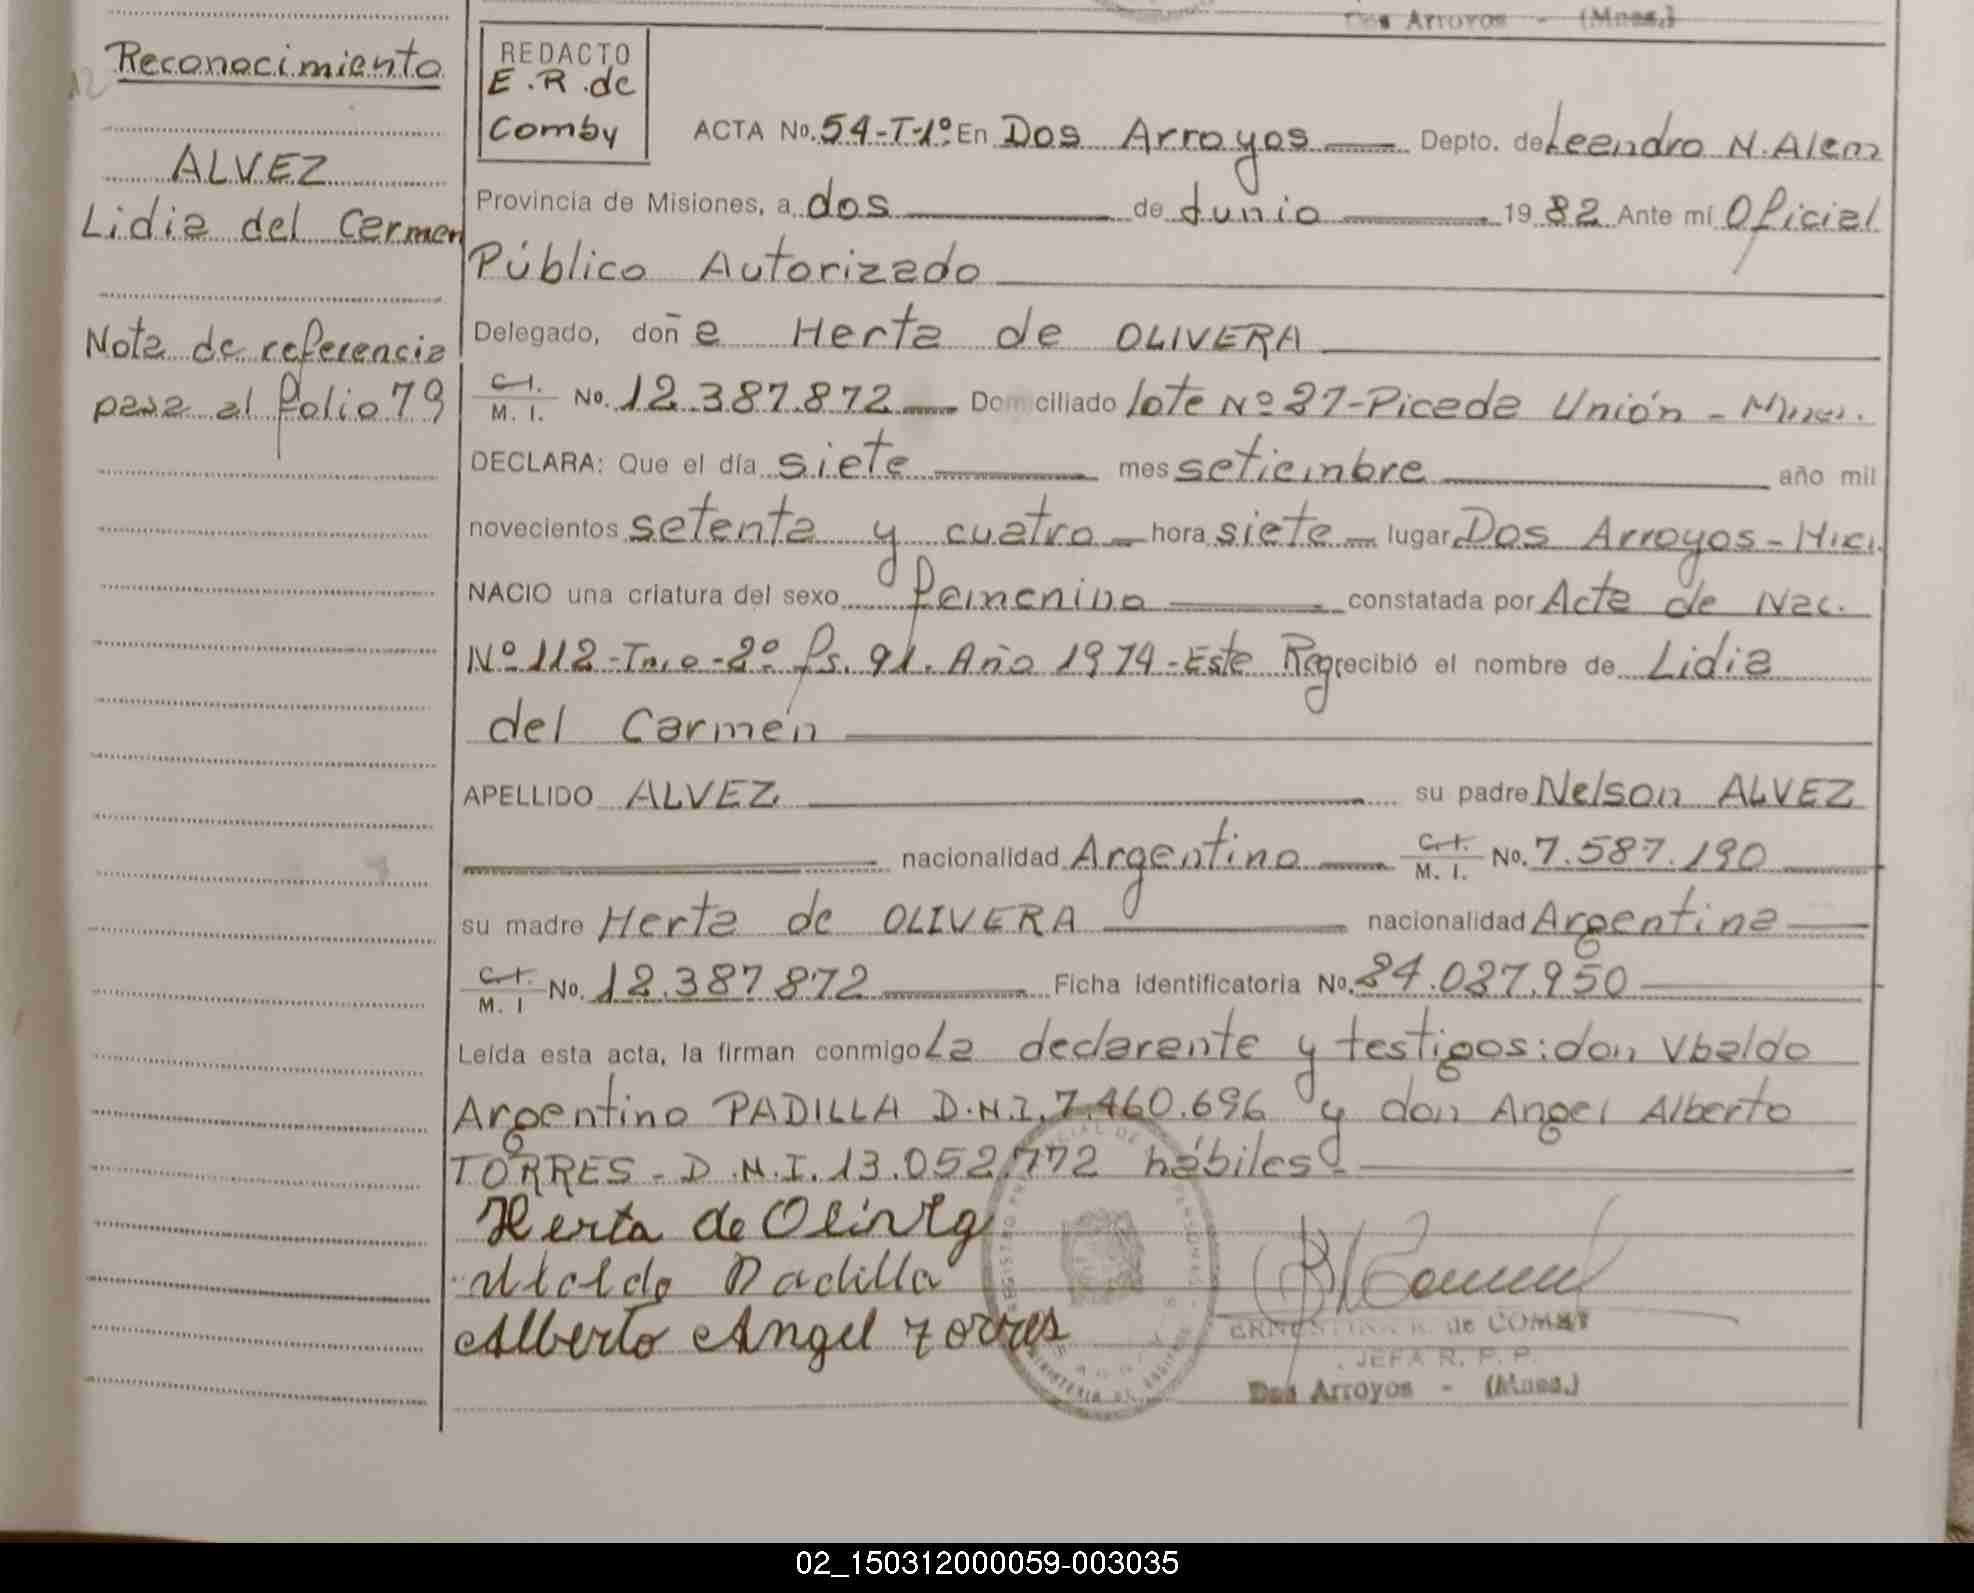 Dos Arroyos - (Mnes.)
Reconocimiento
ALVEZ
Lidia del Carmen
Nota de referencia
pasa al folio 79
REDACTO
E.R. de
Comby
ACTA No. 54-T-1º En Dos Arroyos Depto. de Leandro N. Alem
Provincia de Misiones, a dos de Junio 1982 Ante mí Oficial
Público Autorizado
Delegado, doña Herta de OLIVERA
C.I. M. I. No. 12.387.872 Domiciliado lote Nº 27-Picada Unión -
DECLARA: Que el día siete mes setiembre año mil
novecientos setenta y cuatro hora siete lugar Dos Arroyos -
NACIO una criatura del sexo femenino constatada por Acta de Nac.
Nº 112-Tmo-2º Fs. 91. Año 1974-Este Reg recibió el nombre de Lidia
del Carmen
APELLIDO ALVEZ su padre Nelson ALVEZ
nacionalidad Argentino C.I. M. I. No. 7.587.190
su madre Herta de OLIVERA nacionalidad Argentina
C.I. M. I No. 12.387.872 Ficha Identificatoria No. 24.027.950
Leída esta acta, la firman conmigo La declarante y testigos: don Ubaldo
Argentino PADILLA D.N.I. 7.460.696 y don Angel Alberto
TORRES - D.N.I. 13.052.772 hábiles
Herta de
Padilla
Alberto Angel Torres
ERNESTINA R. de COMBY
JEFA R. P. P.
Dos Arroyos - (Mnes.)
02_150312000059-003035